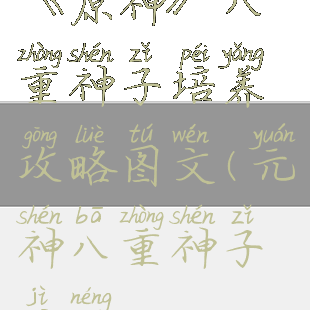 《原神》八
zhòng shén zǐ péi yǎng
重神子培养
gōng lüè tú wén yuán
攻略图文(元
shén bā zhòng shén zǐ
神八重神子
jì néng